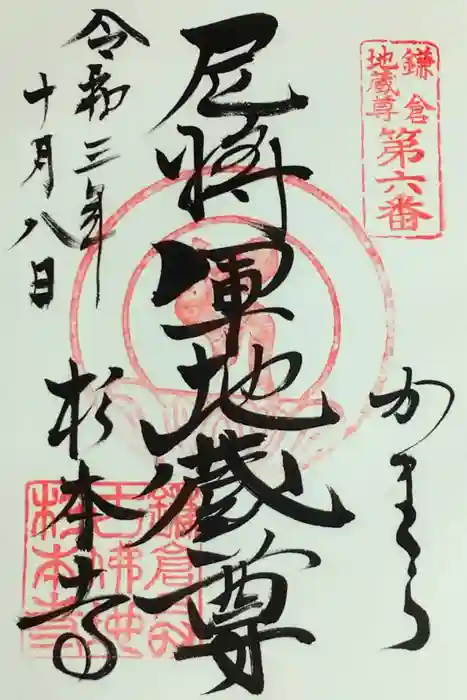 鎌倉
地蔵尊
第六番
かまくら
尼将軍地蔵尊
令和三年
十月八日
杉本寺